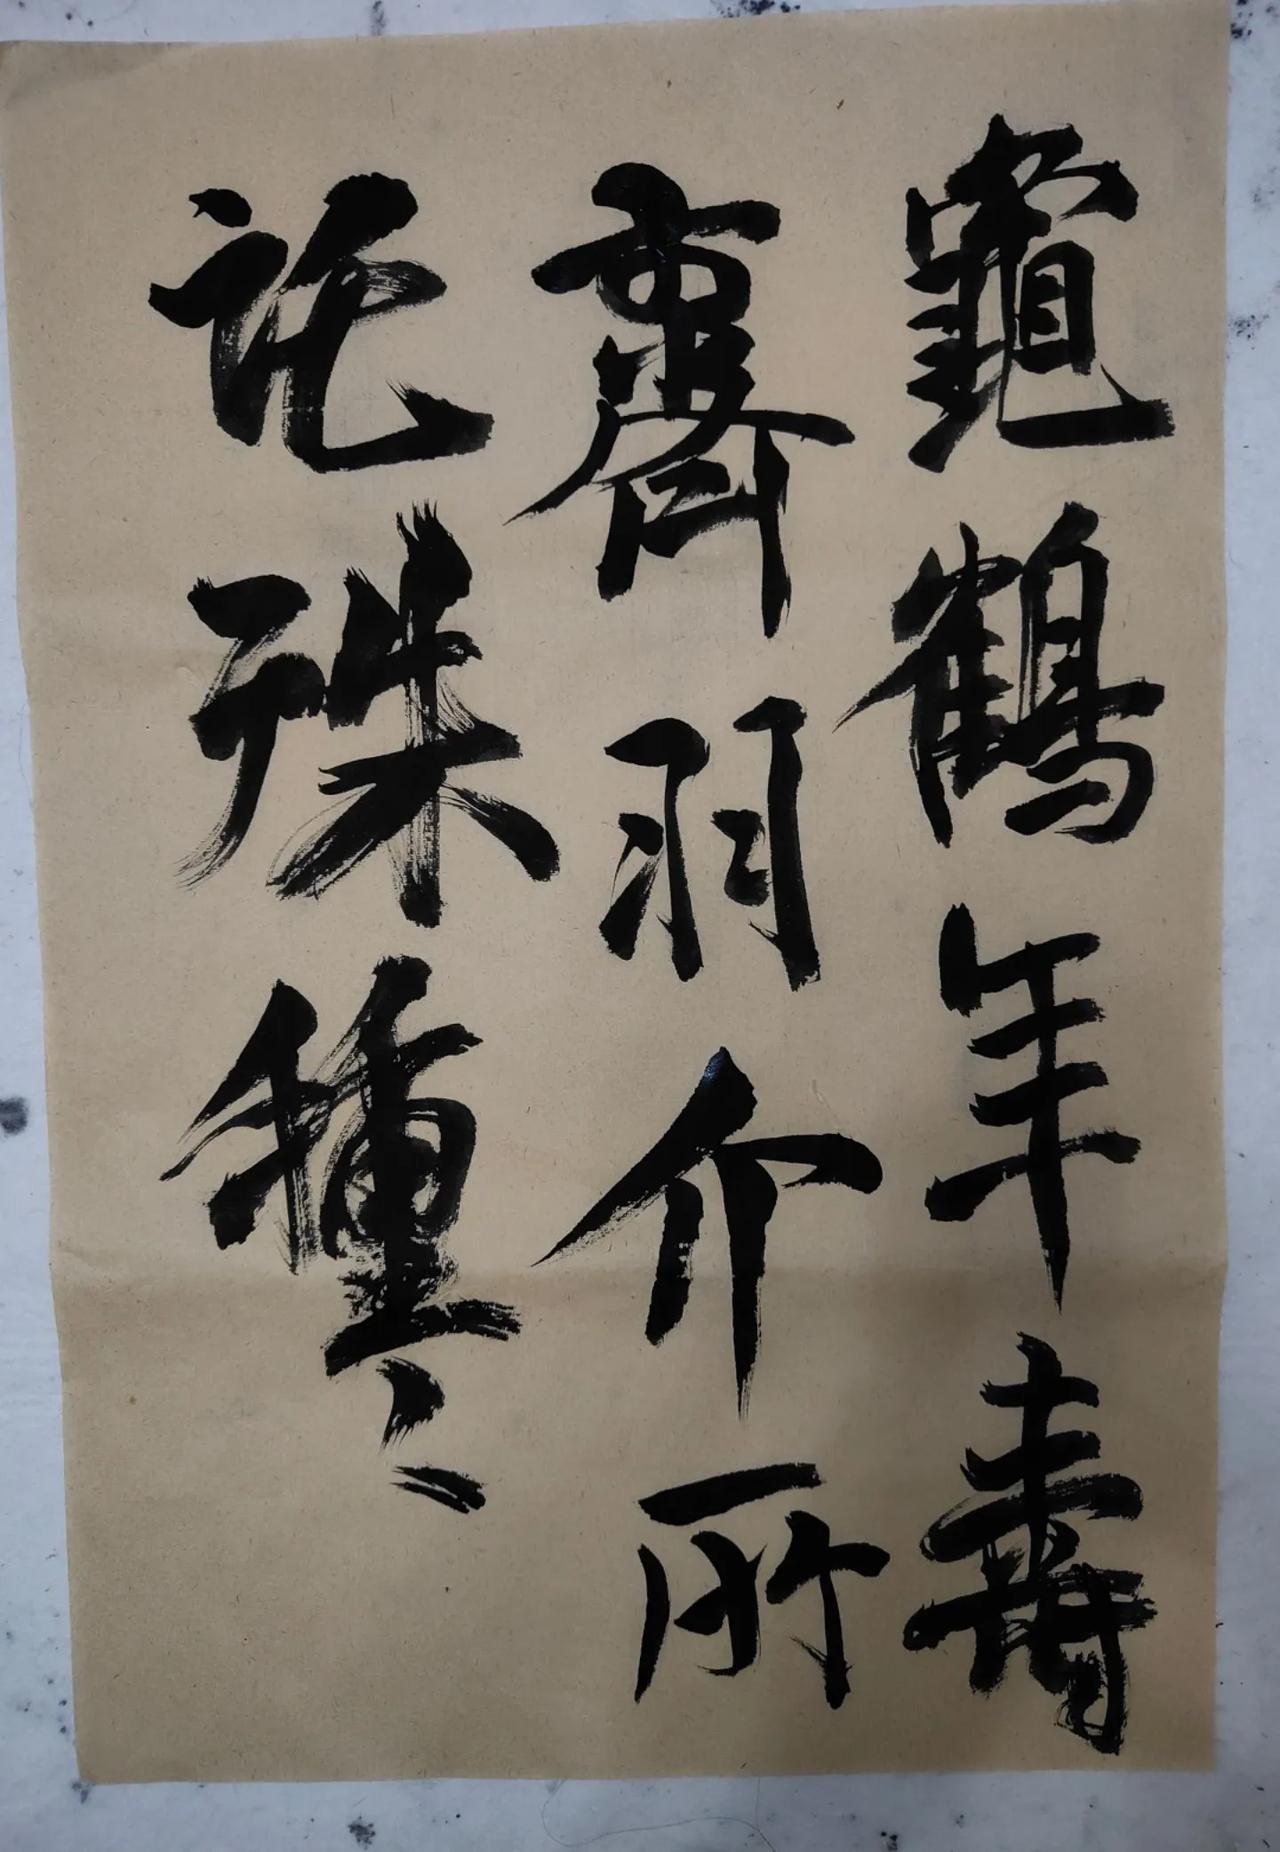 龜鶴年壽
齊羽介所
託殊種々